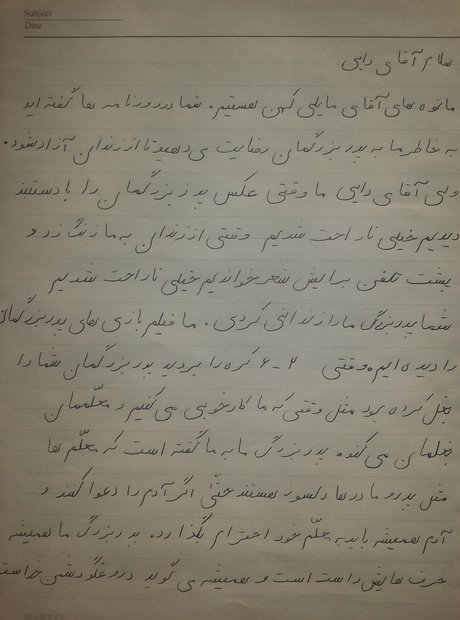 Subject
Date
سلام آقای دایی
ما نوه های آقای مایلی کهن هستیم. شما در روزنامه ها گفته اید
به خاطر ما به پدربزرگمان رضایت می دهید تا از زندان آزاد شود.
ولی آقای دایی ما وقتی عکس پدربزرگمان را با دستبند
دیدیم خیلی ناراحت شدیم وقتی از زندان به ما زنگ زد و
پشت تلفن برایش شعر خواندیم خیلی ناراحت شدیم
شما پدربزرگ ما را زندانی کردی. ما فیلم بازی های پدربزرگمان
را دیده ایم وقتی ۲-۶ کره را بردید پدربزرگمان شما را
بغل کرده بود مثل وقتی که ما کار خوبی می کنیم و معلّممان
بغلمان می کند. پدربزرگ ما به ما گفته است که معلّم ها
مثل پدر و مادرها دلسوز هستند حتّی اگر آدم را دعوا کنند و
آدم همیشه باید به معلّم خود احترام بگذارد. پدربزرگ ما همیشه
حرف هایش راست است و همیشه می گوید دروغگو دشمن خداست